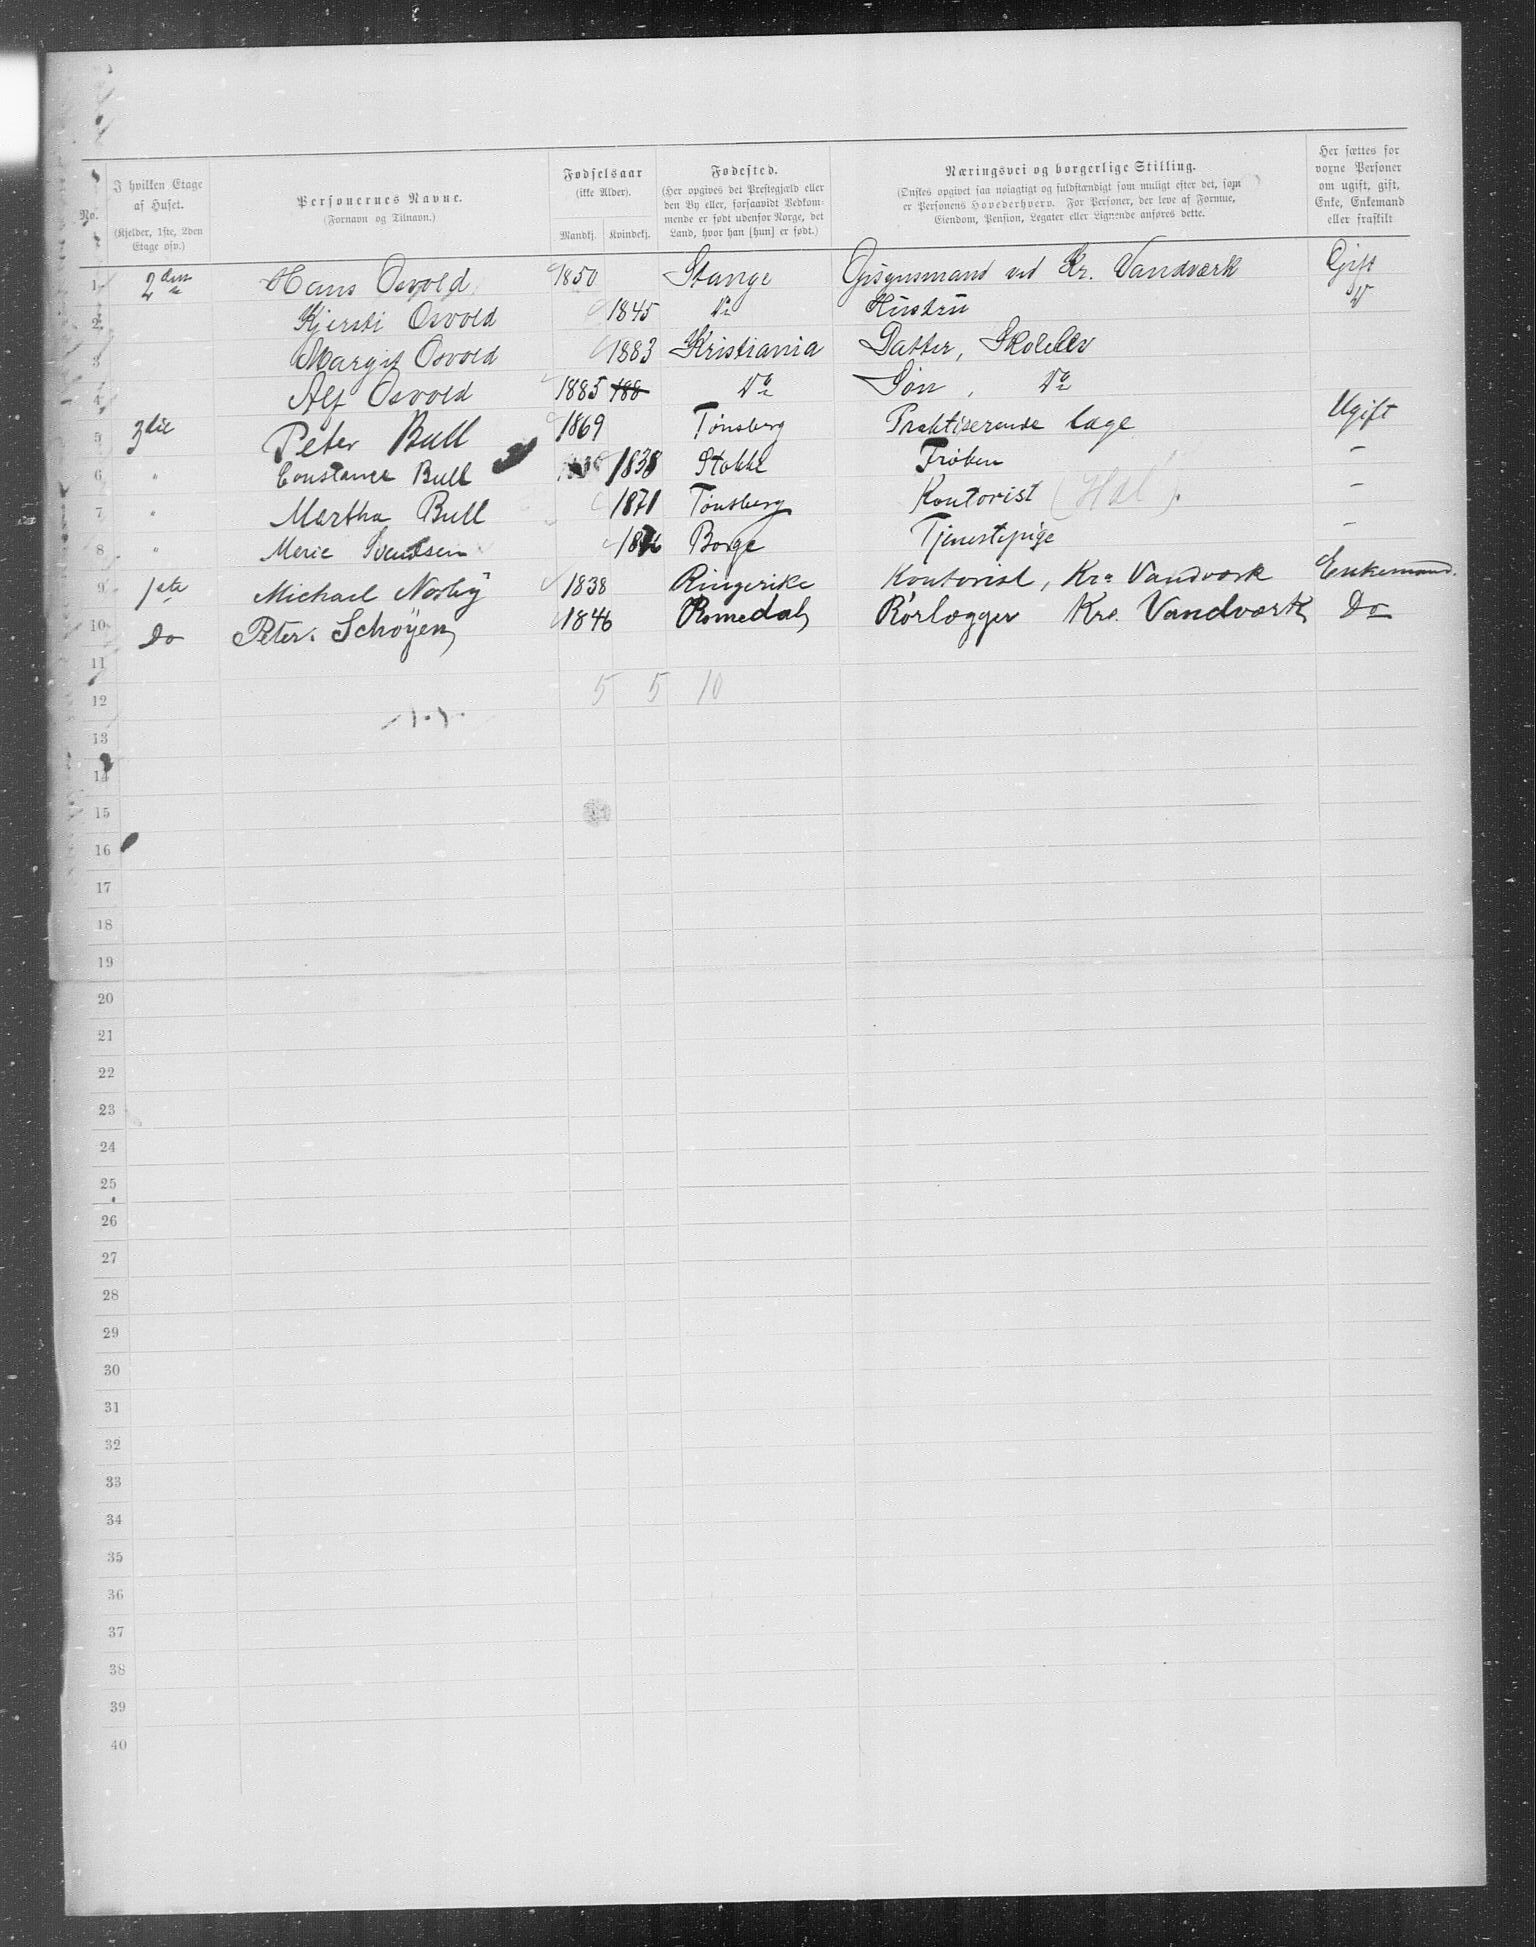 No. I hvilken Etage af Huset. (Kjelder, 1ste, 2den Etage osv.) Personernes Navne. (Fornavn og Tilnavn.) Fødselsaar (ikke Alder). Mandkj. Kvindekj. Fødested. (Her opgives det Præstegjæld eller den By eller, forsaavidt Vedkommende er født udenfor Norge, det Land, hvor han [hun] er født.) Næringsvei og borgerlige Stilling. (Ønskes opgivet saa nøiagtigt og fuldstændigt som muligt efter det, som er Personens Hovederhverv. For Personer, der leve af Formue, Eiendom, Pension, Legater eller Lignende anføres dette. Her sættes for vorne Personer om ugift, gift, Enke, Enkemand eller fraskilt
1 2den Hans Osvold 1850 Stange Opsynsmand ved Kr. Vandværk Gift
2 Kjersti Osvold 1845 Do Hustru D
3 Margit Osvold 1883 Kristiania Datter, Skoleelev
4 Alf Osvold 1885 188 Do Søn, Do
5 3die Peter Bull 1869 Tønsberg Praktiserende læge Ugift
6 " Constance Bull 1838 Stokke Frøken –
7 " Martha Bull 1871 Tønsberg Kontorist –
8 " Merie Svendsen 1876 Borge Tjenestepige –
9 1ste Michael Norby 1838 Ringerike Kontorist, Kra Vandværk Enkemand.
10 Do Peter Schøyen 1846 Romedal Rørlægger Kra. Vandværk Do
11
12 5 5 10
13
14
15
16
17
18
19
20
21
22
23
24
25
26
27
28
29
30
31
32
33
34
35
36
37
38
39
40